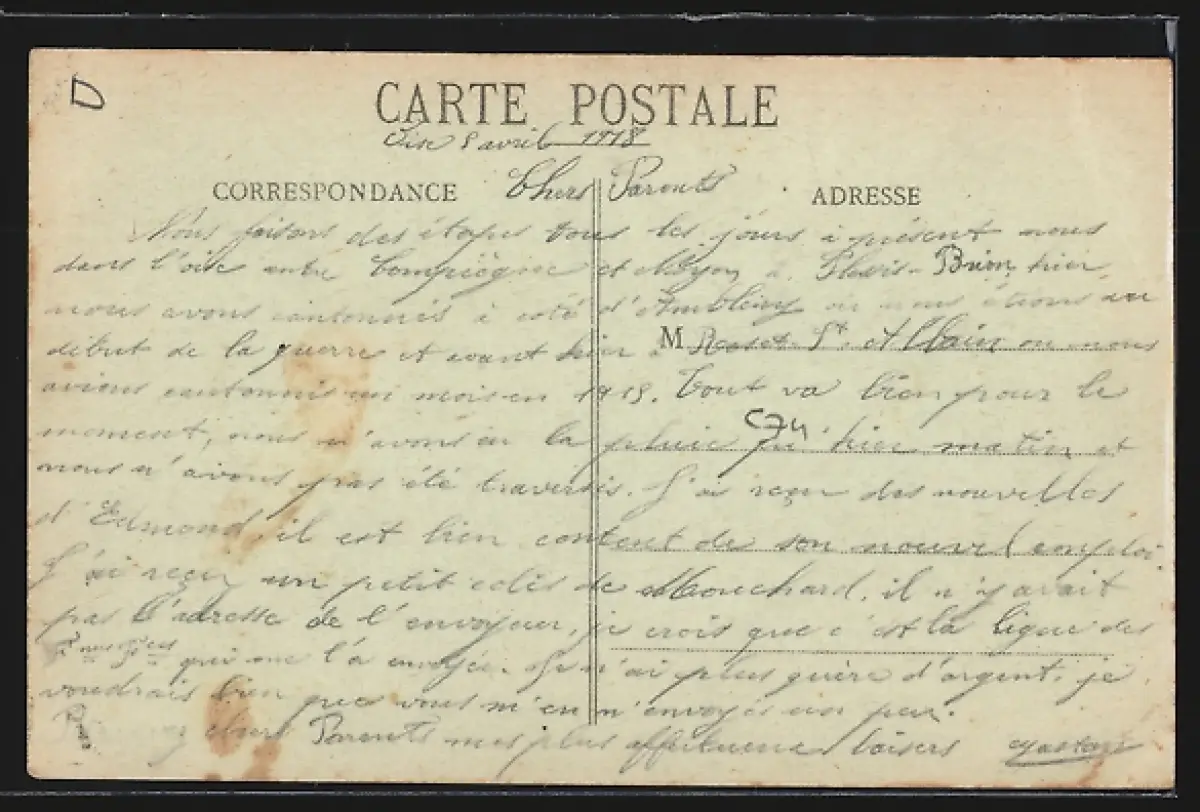 D
CARTE POSTALE
Oise 8 avril 1918
CORRESPONDANCE Chers Parents ADRESSE
Nous faisons des étapes tous les jours à présent nous
dans l'oise entre Compiègne et Noyon à Plessis-Brion, hier,
nous avons cantonnés à coté d'Ambleny où nous étions au
début de la guerre et avant hier à M St. où nous
avions cantonnés un mois en 1915. Tout va bien pour le
C74
moment, nous n'avons eu la pluie qu'hier matin et
nous n'avons pas été traversés. J'ai reçu des nouvelles
d'Edmond, il est bien content de son nouvel emploi.
J'ai reçu un petit colis de Mouchard, il n'y avait
pas l'adresse de l'envoyeur, je crois que c'est la ligue des
qui me l'a envoyée. Je n'ai plus guère d'argent, je
voudrais bien que vous m'en n'envoyés un peu.
chers Parents mes plus affectueux baisers